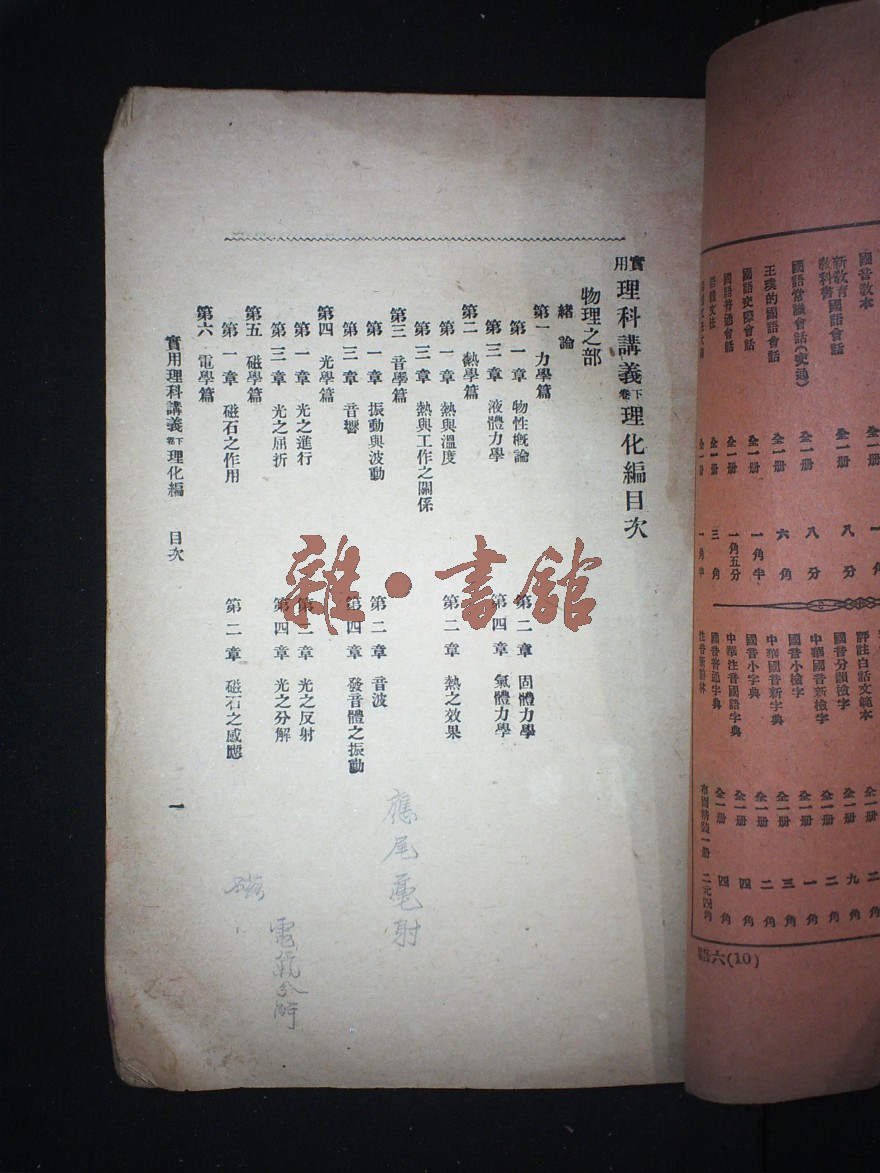 國音敎本 全一册
新敎育敎科書國語會話 全一册 八分
國語常識會話(史通) 全一册 八分
王璞的國語會話 全一册 六角
國語交際會話 全一册 一角半
國語普通會話 全一册 一角五分
全一册 三角
全一册 一角半
評註白話文範本 全一册 二角
國音分韻檢字 全一册 九角
中華國音新檢字 全一册 二角
國音小檢字 全一册 一角
中華國音新字典 全一册 三角
國音小字典 全一册 二角
中華注音國語字典 全一册 四角
國音普通字典 全一册 四角
布面精裝一册 二元四角
六(10)
實用理科講義下卷理化編目次
物理之部
緒論
第一 力學篇
第一章 物性概論 第二章 固體力學
第三章 液體力學 第四章 氣體力學
第二 熱學篇
第一章 熱與溫度 第二章 熱之效果
第三章 熱與工作之關係
第三 音學篇
第一章 振動與波動 第二章 音波
第三章 音響 第四章 發音體之振動
第四 光學篇
第一章 光之進行 第二章 光之反射
第三章 光之屈折 第四章 光之分解
第五 磁學篇
第一章 磁石之作用 第二章 磁石之感應
第六 電學篇
實用理科講義下卷理化編 目次 一
應尾毫射
電氣分所
磁
雜·書館